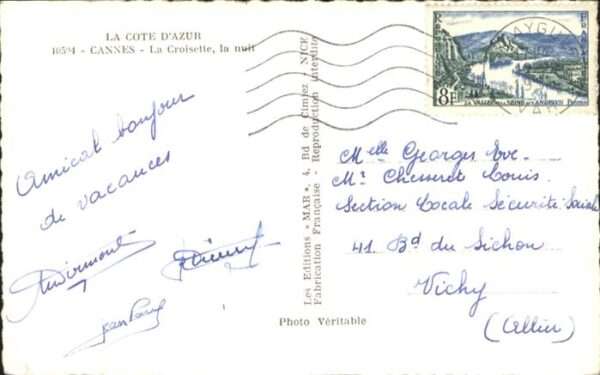 LA COTE D'AZUR
10594 - CANNES - La Croisette, la nuit
Amical bonjour
de vacances
Jean Paul
Photo Véritable
Les Editions "MAR", 4, Bd de Cimiez - NICE
Fabrication Française - Reproduction interdite
8F
LA VALLÉE DE LA SEINE AUX ANDELYS
VAR
Melle Georges Eve.
Mr Chesseret Louis.
Section Locale Sécurité Sociale
41 Bd du Sichon
Vichy
(Allier)